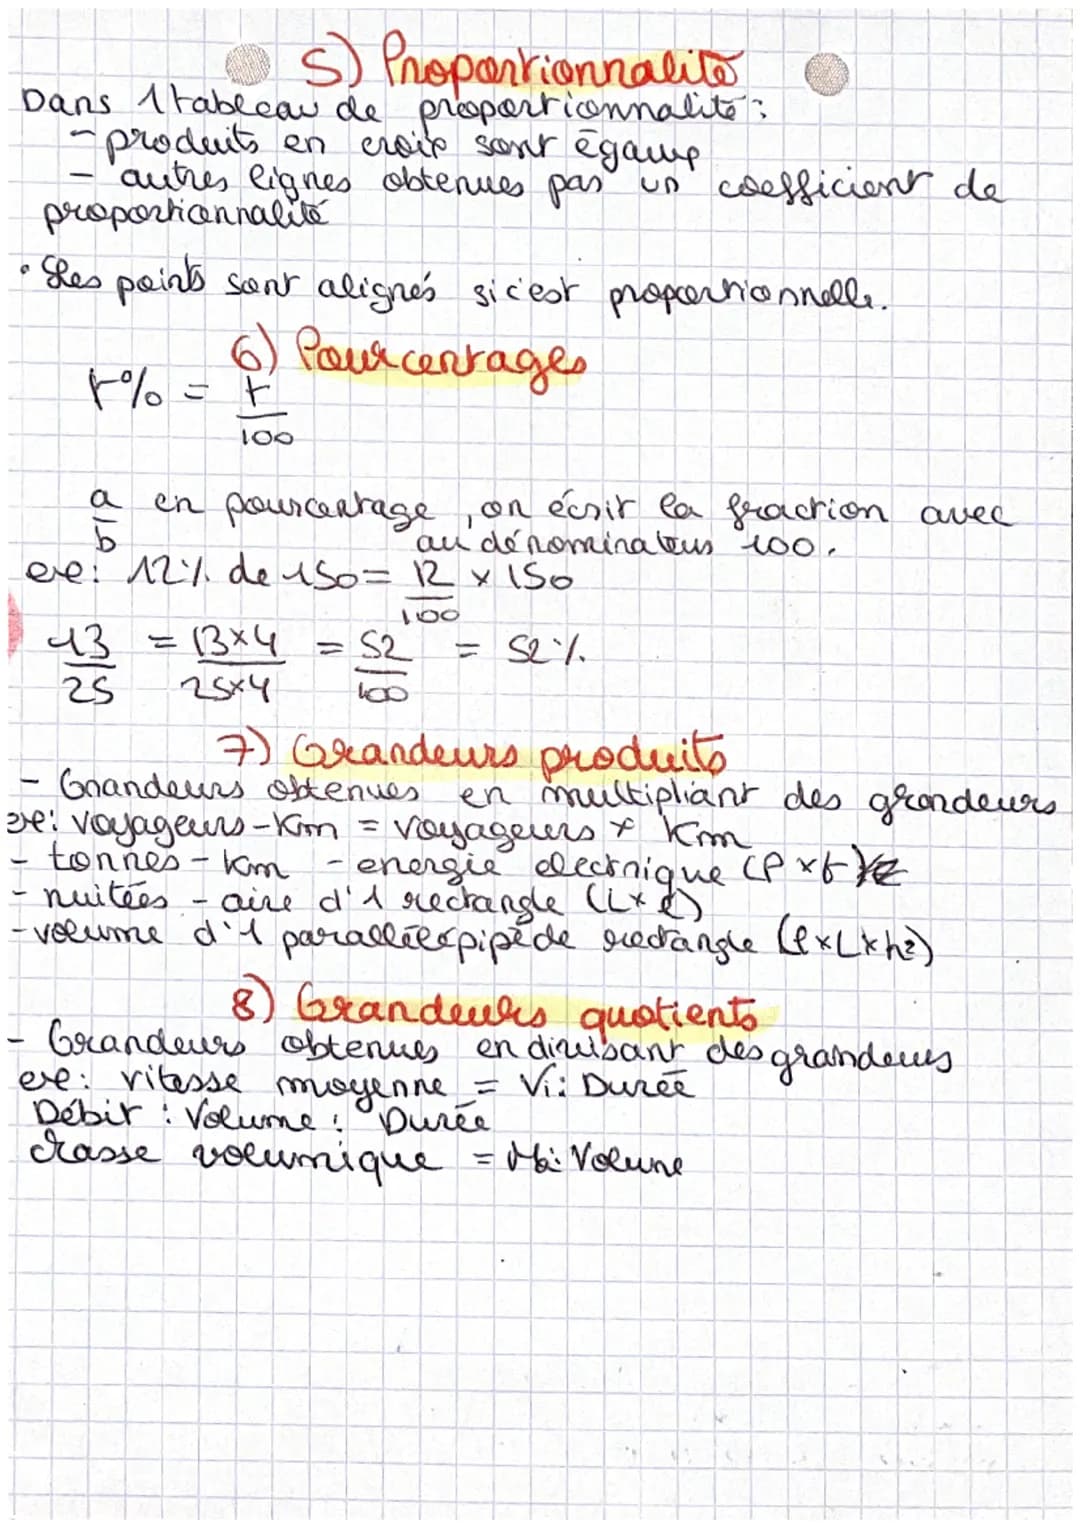 5) Proportionnalité
Dans 1 tableau de proportionnalité :
- produits en croix sont égaux
- autres lignes obtenues par un coefficient de
proportionnalité
• Les points sont alignés si c'est proportionnelle.
6) Pourcentages
t% = t/100
a/b en pourcentage, on écrit la fraction avec
au dénominateur 100.
ex: 12% de 150 = 12/100 × 150
13/25 = 13×4/25×4 = 52/100 = 52%
7) Grandeurs produits
- Grandeurs obtenues en multipliant des grandeurs
ex: voyageurs-Km = voyageurs × Km
- tonnes-km - energie electrique (P×t)
- nuitées - aire d'1 rectangle (L×l)
- volume d'1 parallélépipède rectangle (l×L×h)
8) Grandeurs quotients
- Grandeurs obtenues en divisant des grandeurs
ex: vitesse moyenne = Vi: Durée
Débit : Volume : Durée
Masse volumique = Ma: Volume